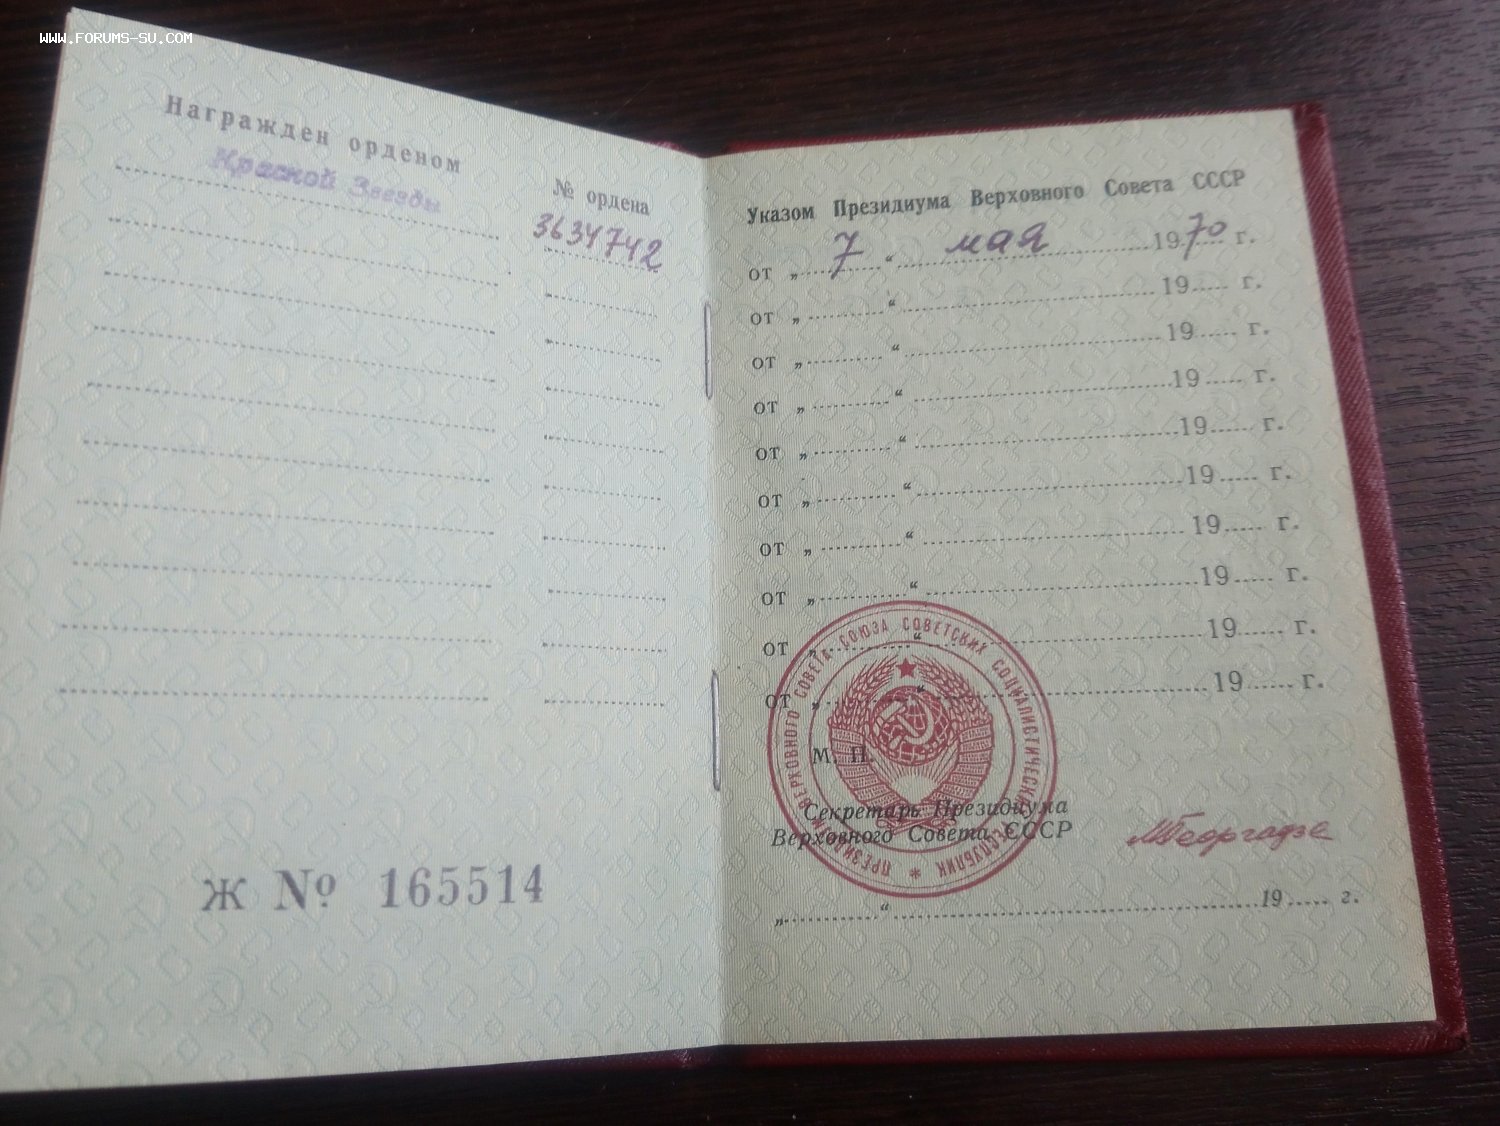 WWW.FORUMS-SU.COM
Награжден орденом
Красной Звезды
№ ордена
3634742
Ж № 165514
Указом Президиума Верховного Совета СССР
от „ 7 “ мая 1970 г.
от „ “ 19 г.
от „ “ 19 г.
от „ “ 19 г.
от „ “ 19 г.
от „ “ 19 г.
от „ “ 19 г.
от „ “ 19 г.
от „ “ 19 г.
от „ “ 19 г.
ПРЕЗИДИУМ ВЕРХОВНОГО СОВЕТА СОЮЗА СОВЕТСКИХ СОЦИАЛИСТИЧЕСКИХ РЕСПУБЛИК
М. П.
Секретарь Президиума
Верховного Совета СССР
МГеоргадзе
„ “ 19 г.